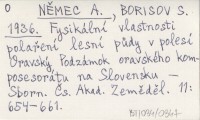 O NĚMEC A., BORISOV S.
1936. Fysikální vlastnosti
polaření lesní půdy v polesí
Oravský Podzámok oravského kom-
posesorátu na Slovensku —
Sborn. Čs. Akad. Zeměděl. 11:
654-661.